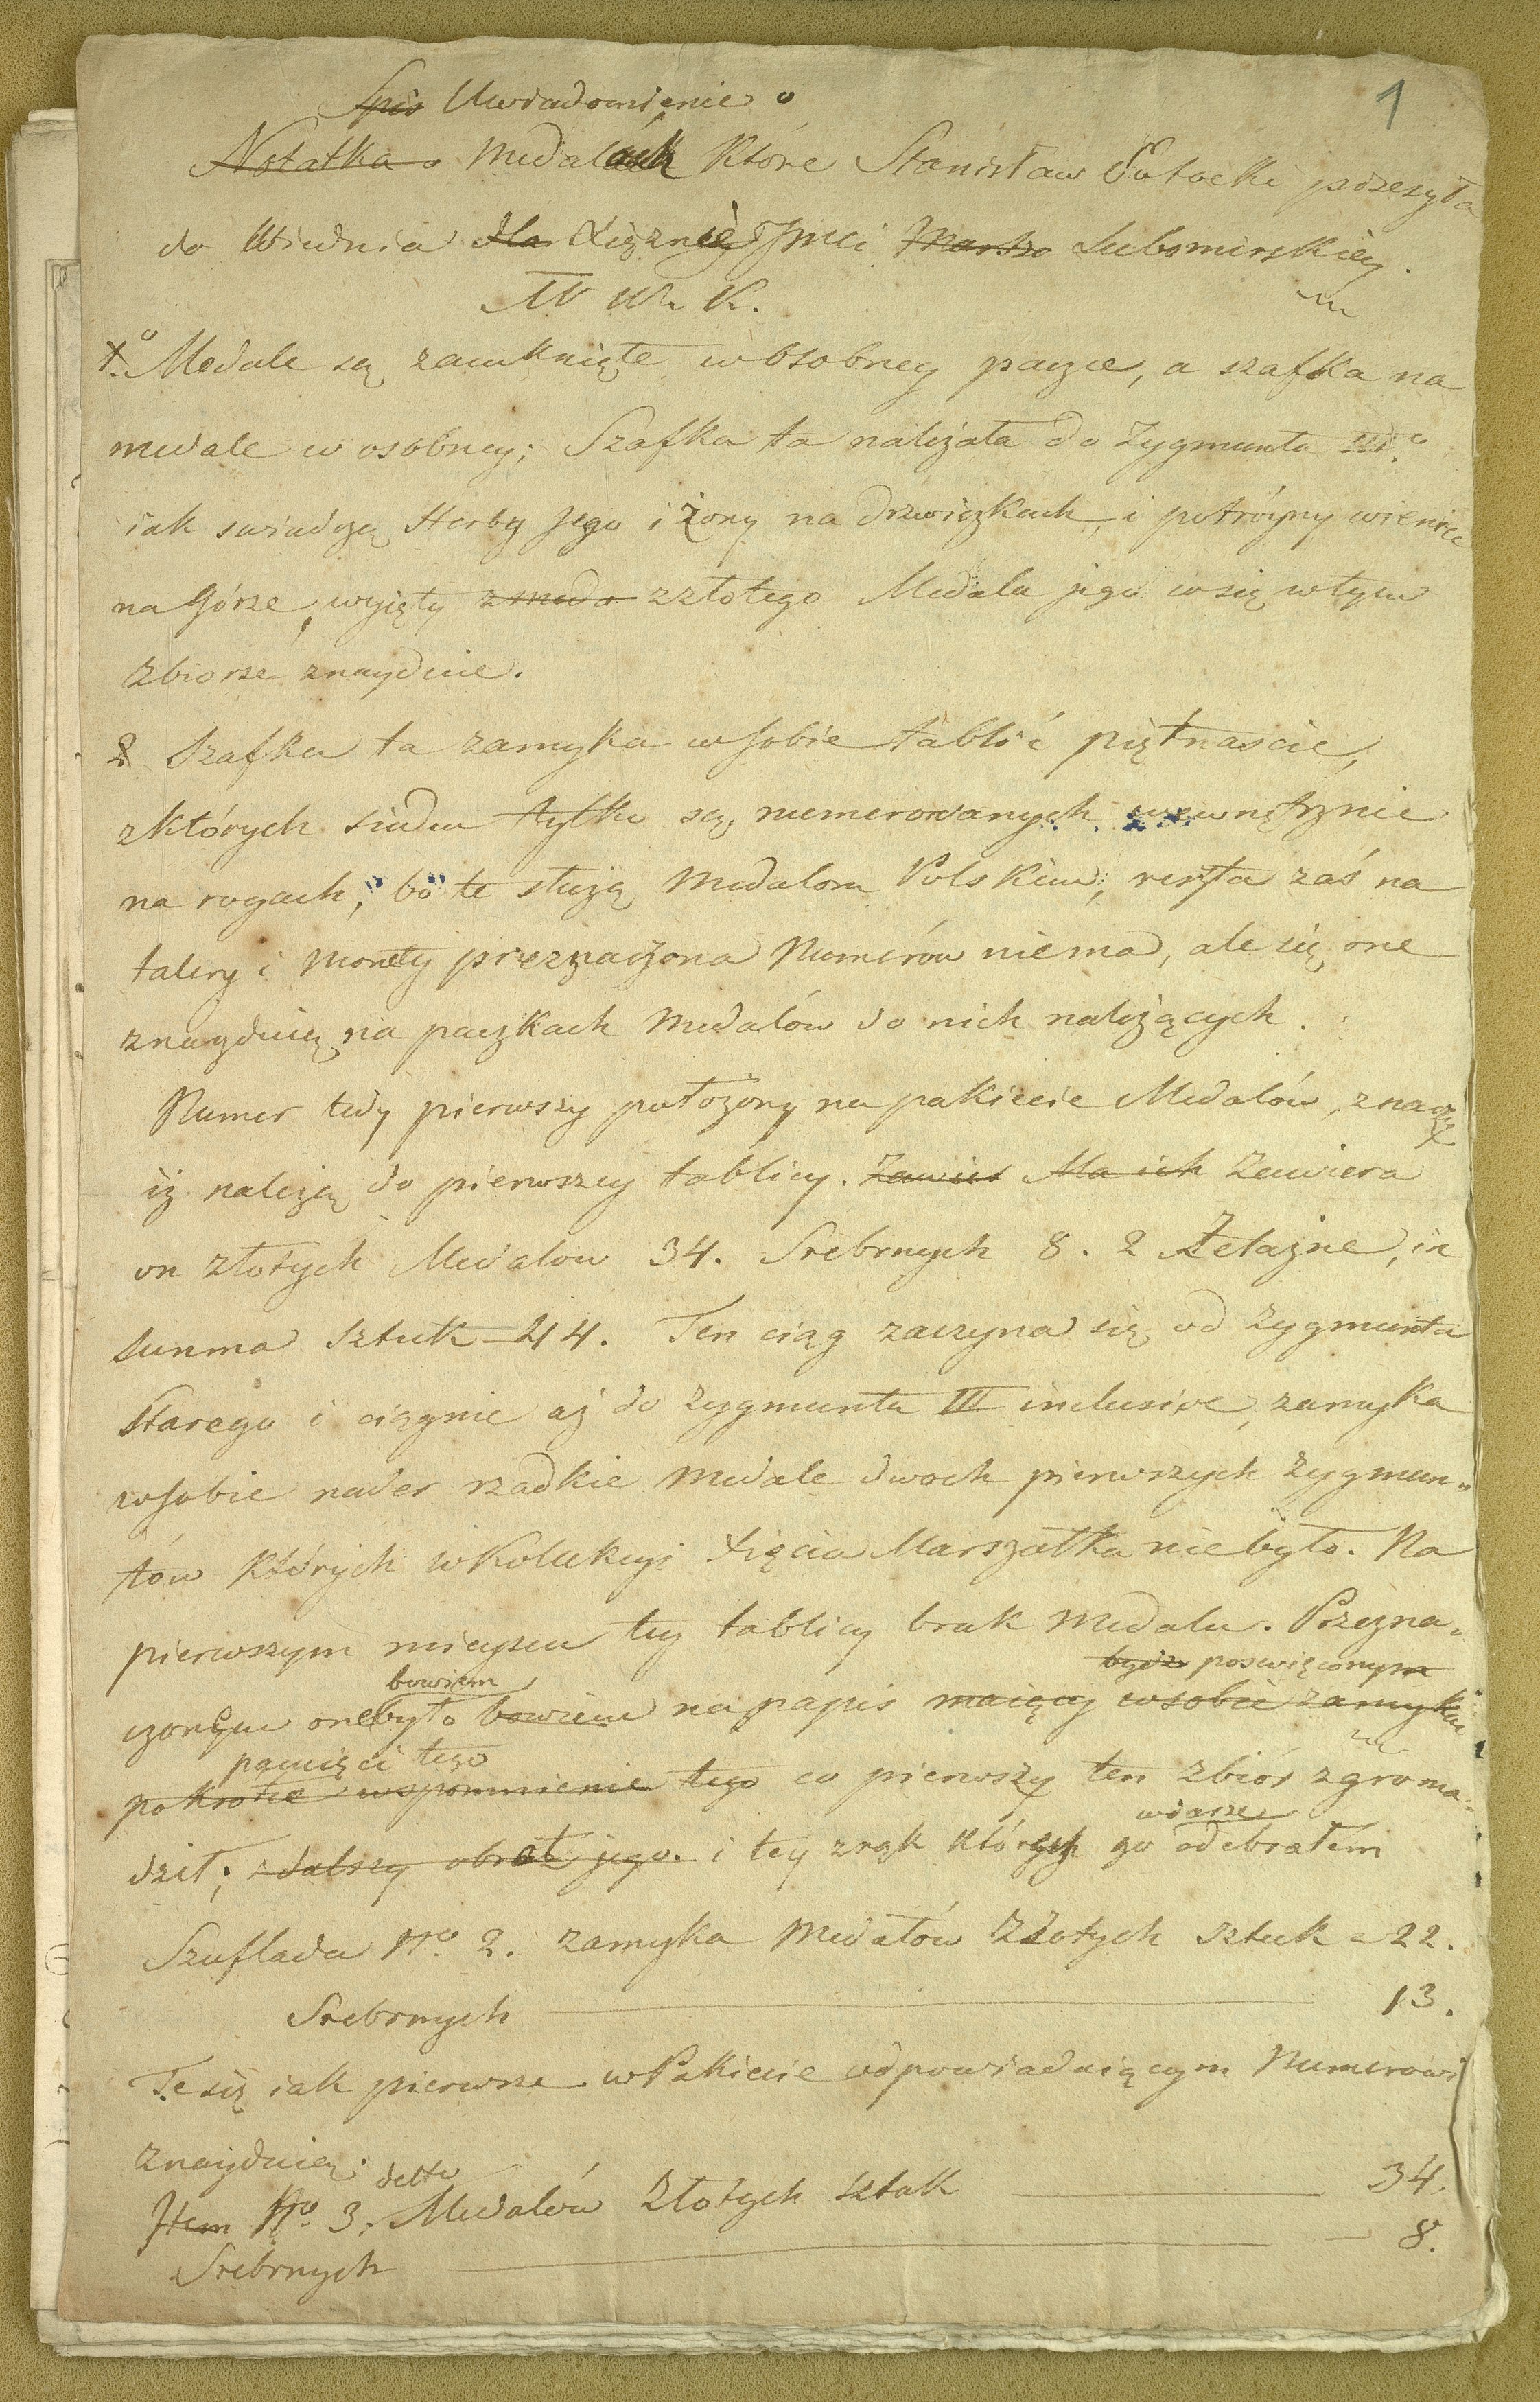 1
Spis Uwiadomienie o
Notatka o Medalach które Stanisław Potocki przesyła
do Wiednia dla Xiężnie Jmci Marsza Lubomirskiey.
M. W. K.
1.o Medale są zamknięte w osobney pacze, a szafka na
medale w osobney; Szafka ta należała do Zygmunta III.o
iak swiadczą Herby Jego i żony na drzwiczkach, i potróyny wieniec
na Górze, wyięty z meda z złotego Medalu jego co się w tym
zbiorze znayduie.
2 Szafka ta zamyka w sobie tablic piętnascie,
z których siedm tylko są numerowanych wewnętrznie
na rogach, bo te służą Medalom Polskim, reszta zaś na
talery i monety przeznaczona Numerów niema, ale się one
znayduią na paczkach Medalów do nich należących.
Numer tedy pierwszy położony na pakiecie Medalów, znaczy
iż należą do pierwszey tablicy. Zawier Ma ich Zawiera
on złotych Medalow 34. Srebrnych 8. 2 Żelazne, in
summa Sztuk 44. Ten ciąg zaczyna się od Zygmunta
Starego i ciągnie aż do Zygmunta III inclusive, zamyka
w sobie nader rzadkie Medale dwoch pierwszych Zygmun-
tów których w Kolekcyi Xięcia Marszałka niebyło. Na
pierwszym mieyscu tey tablicy brak Medalu. Przezna-
bydz poswięconym
bowiem
czonym one było bowiem na napis maiący w sobie zamykać
pamięci tego
po krotce wspomnienie tego co pierwszy ten zbiór zgroma-
w darze
dził; z dalszy obrot jego. i tey z rąk których go odebrałem
Szuflada Nro 2. zamyka Medalów Złotych sztuk - 22.
Srebrnych 13.
Te się iak pierwsze w Pakiecie odpowiadaiącym Numerowi
znayduią.
detto
Item Nro 3. Medalów Złotych sztuk 34.
Srebrnych 8.